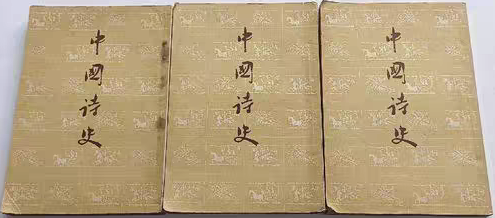 中國诗史
中國诗史
中國诗史